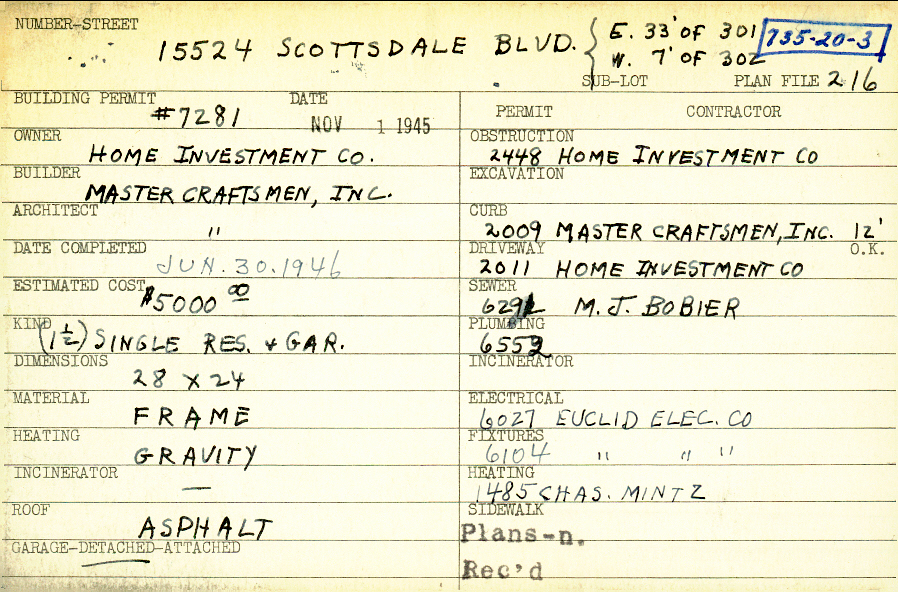 NUMBER-STREET
15524 SCOTTSDALE BLVD. { E. 33' OF 301
W. 7' OF 302
735-20-3
SUB-LOT PLAN FILE 216
BUILDING PERMIT DATE
#7281 NOV 1 1945
OWNER
HOME INVESTMENT CO.
BUILDER
MASTER CRAFTSMEN, INC.
ARCHITECT
"
DATE COMPLETED
JUN. 30. 1946
ESTIMATED COST
$5000 00
KIND
(1 1/2) SINGLE RES. & GAR.
DIMENSIONS
28 X 24
MATERIAL
FRAME
HEATING
GRAVITY
INCINERATOR
—
ROOF
ASPHALT
GARAGE-DETACHED-ATTACHED
PERMIT CONTRACTOR
OBSTRUCTION
2448 HOME INVESTMENT CO
EXCAVATION
CURB
2009 MASTER CRAFTSMEN, INC. 12'
DRIVEWAY O.K.
2011 HOME INVESTMENT CO
SEWER
M. J. BOBIER
PLUMBING
6552
INCINERATOR
ELECTRICAL
6027 EUCLID ELEC. CO
FIXTURES
6104 " " "
HEATING
1485 CHAS. MINTZ
SIDEWALK
Plans-n.
Rec'd